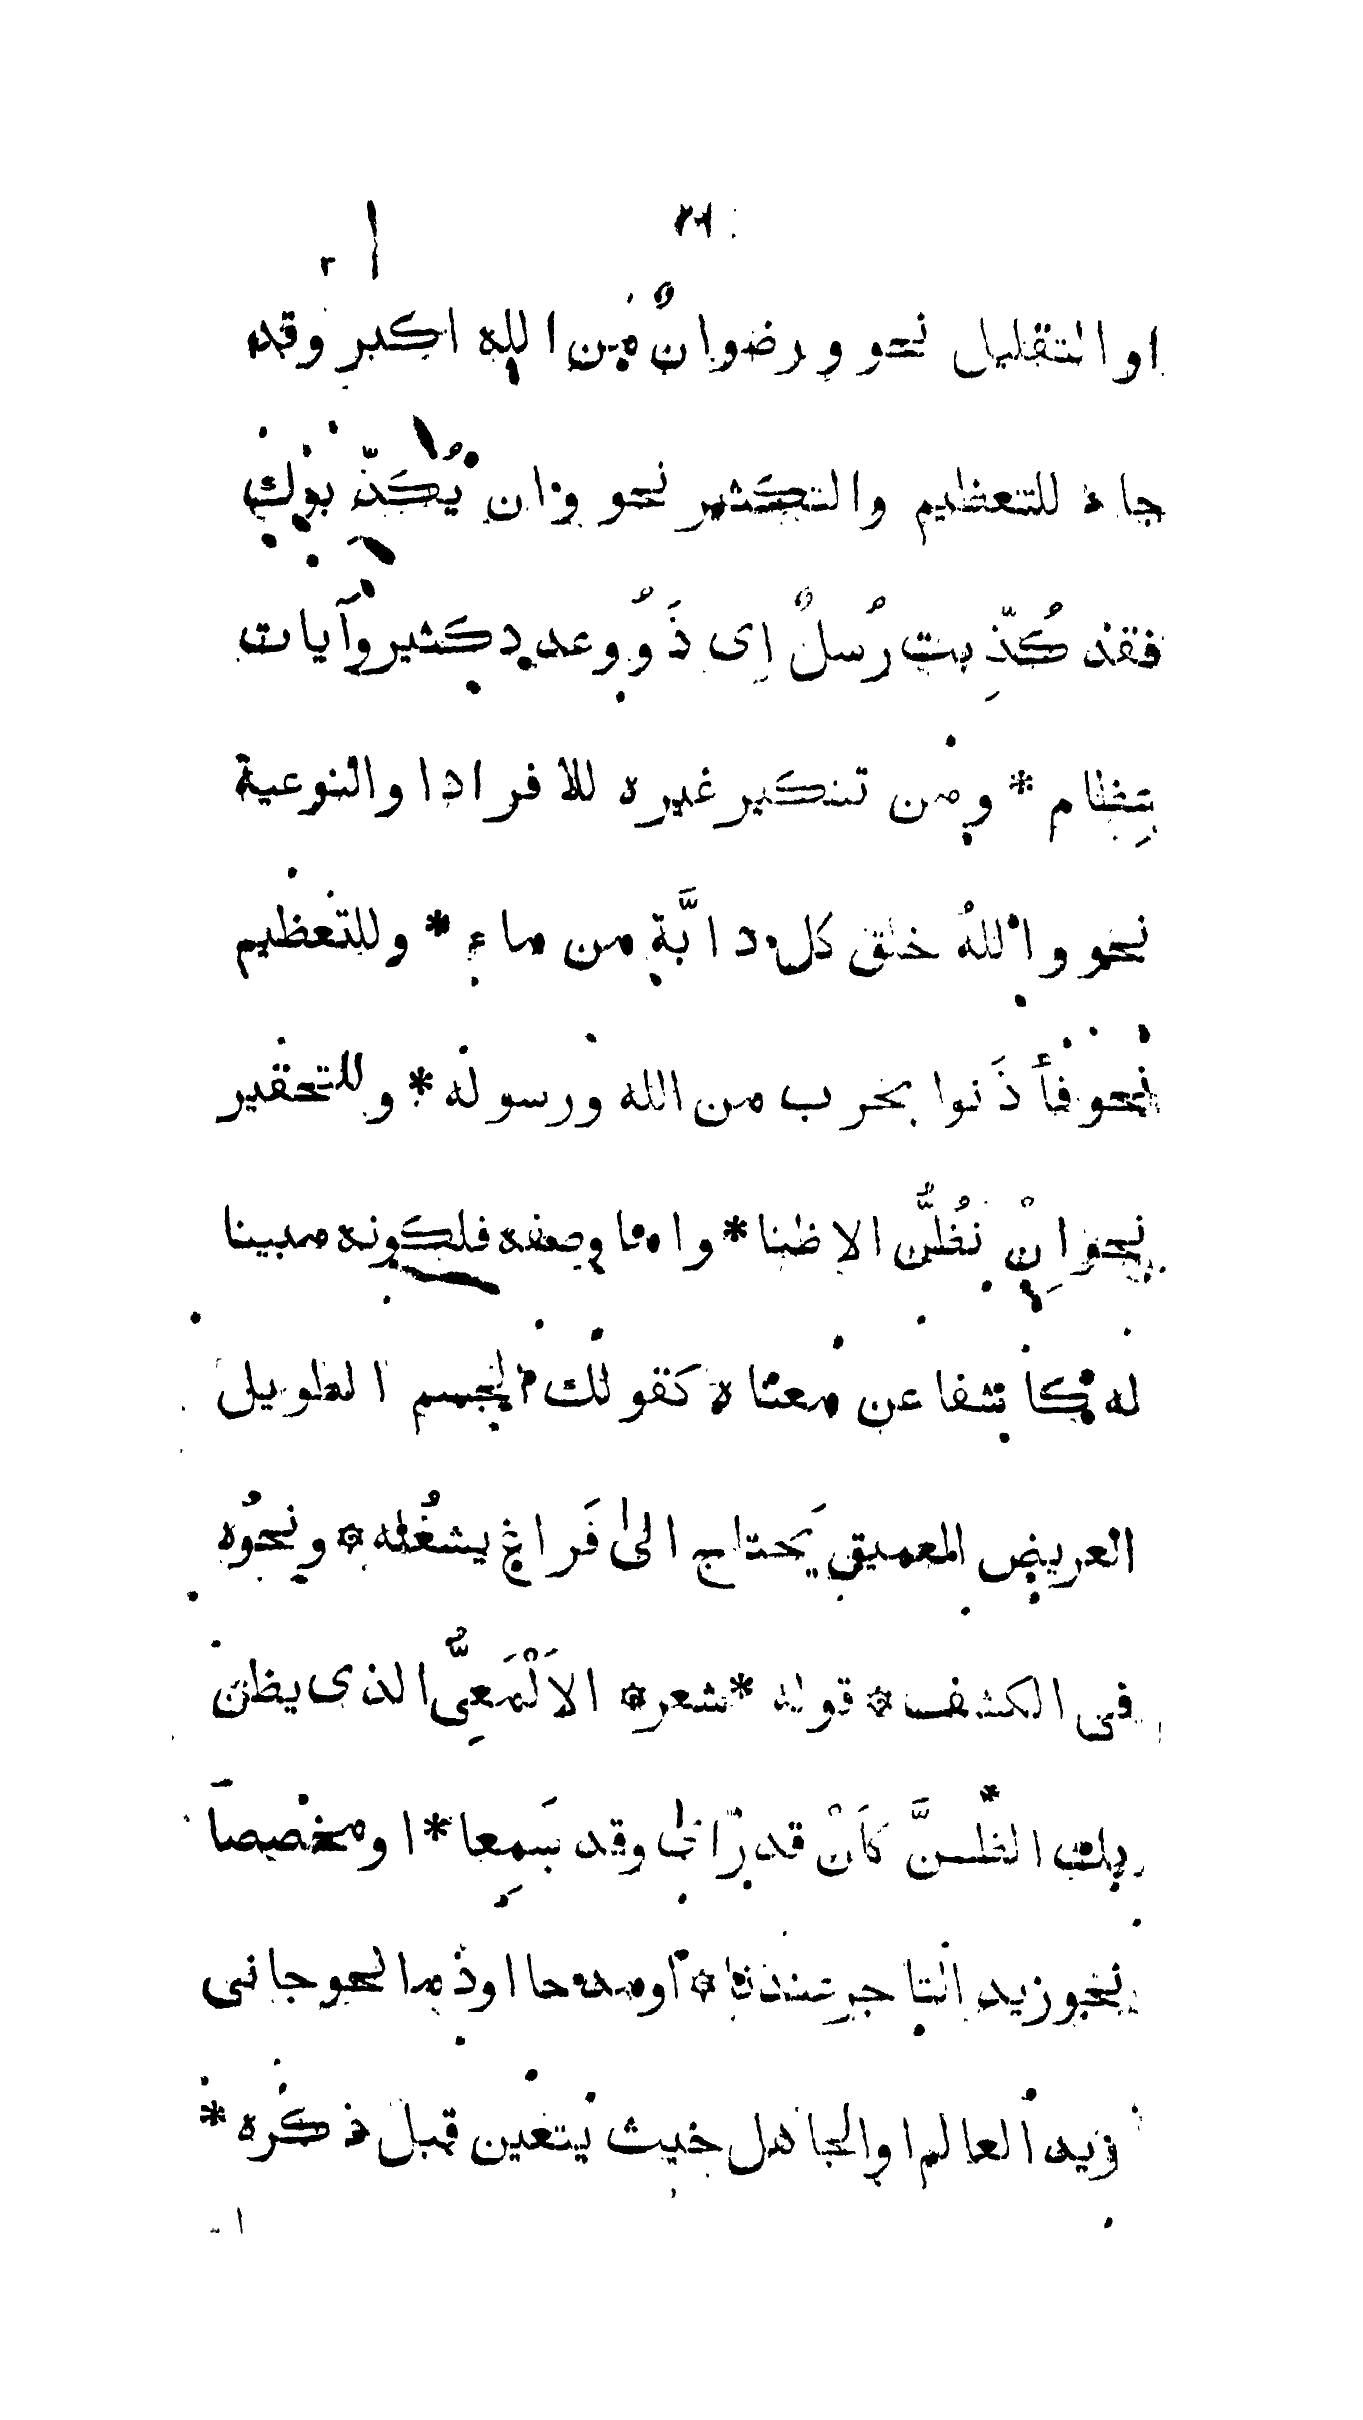 او التقليل نحو ورضوانٌ من الله اكبر وقد
جاء للتعظيم والتكثير نحو وان يُكَذّبوك
فقد كُذِّبت رُسلٌ اِى ذَوُو عدد كثير وآيات
عِظام * ومن تنكير غيره للافراد او النوعية
نحو واللهُ خلق كل دابَّة من ماء * وللتعظيم
نحو فأذَنوا بحرب من الله ورسوله * وللتحقير
نحو اِنْ نَظُنُّ الا ظنا * واما وصفه فلكونه مبينا
له كاشفا عن معناه كقولك الجسم الطويل
العريض العميق يَحتاج الى فَراغ يشغُله * ونحوُه
فى الكشف * قوله * شعر * الاَلْمَعِىُّ الذى يظن
بك الظنَّ كاَنْ قد رآى وقد سَمِعا * او مخصصا
نحو زيد التاجر عندنا * او مدحا او ذما نحو جانى
زيد العالم او الجاهل حيث يتعين قبل ذكره *